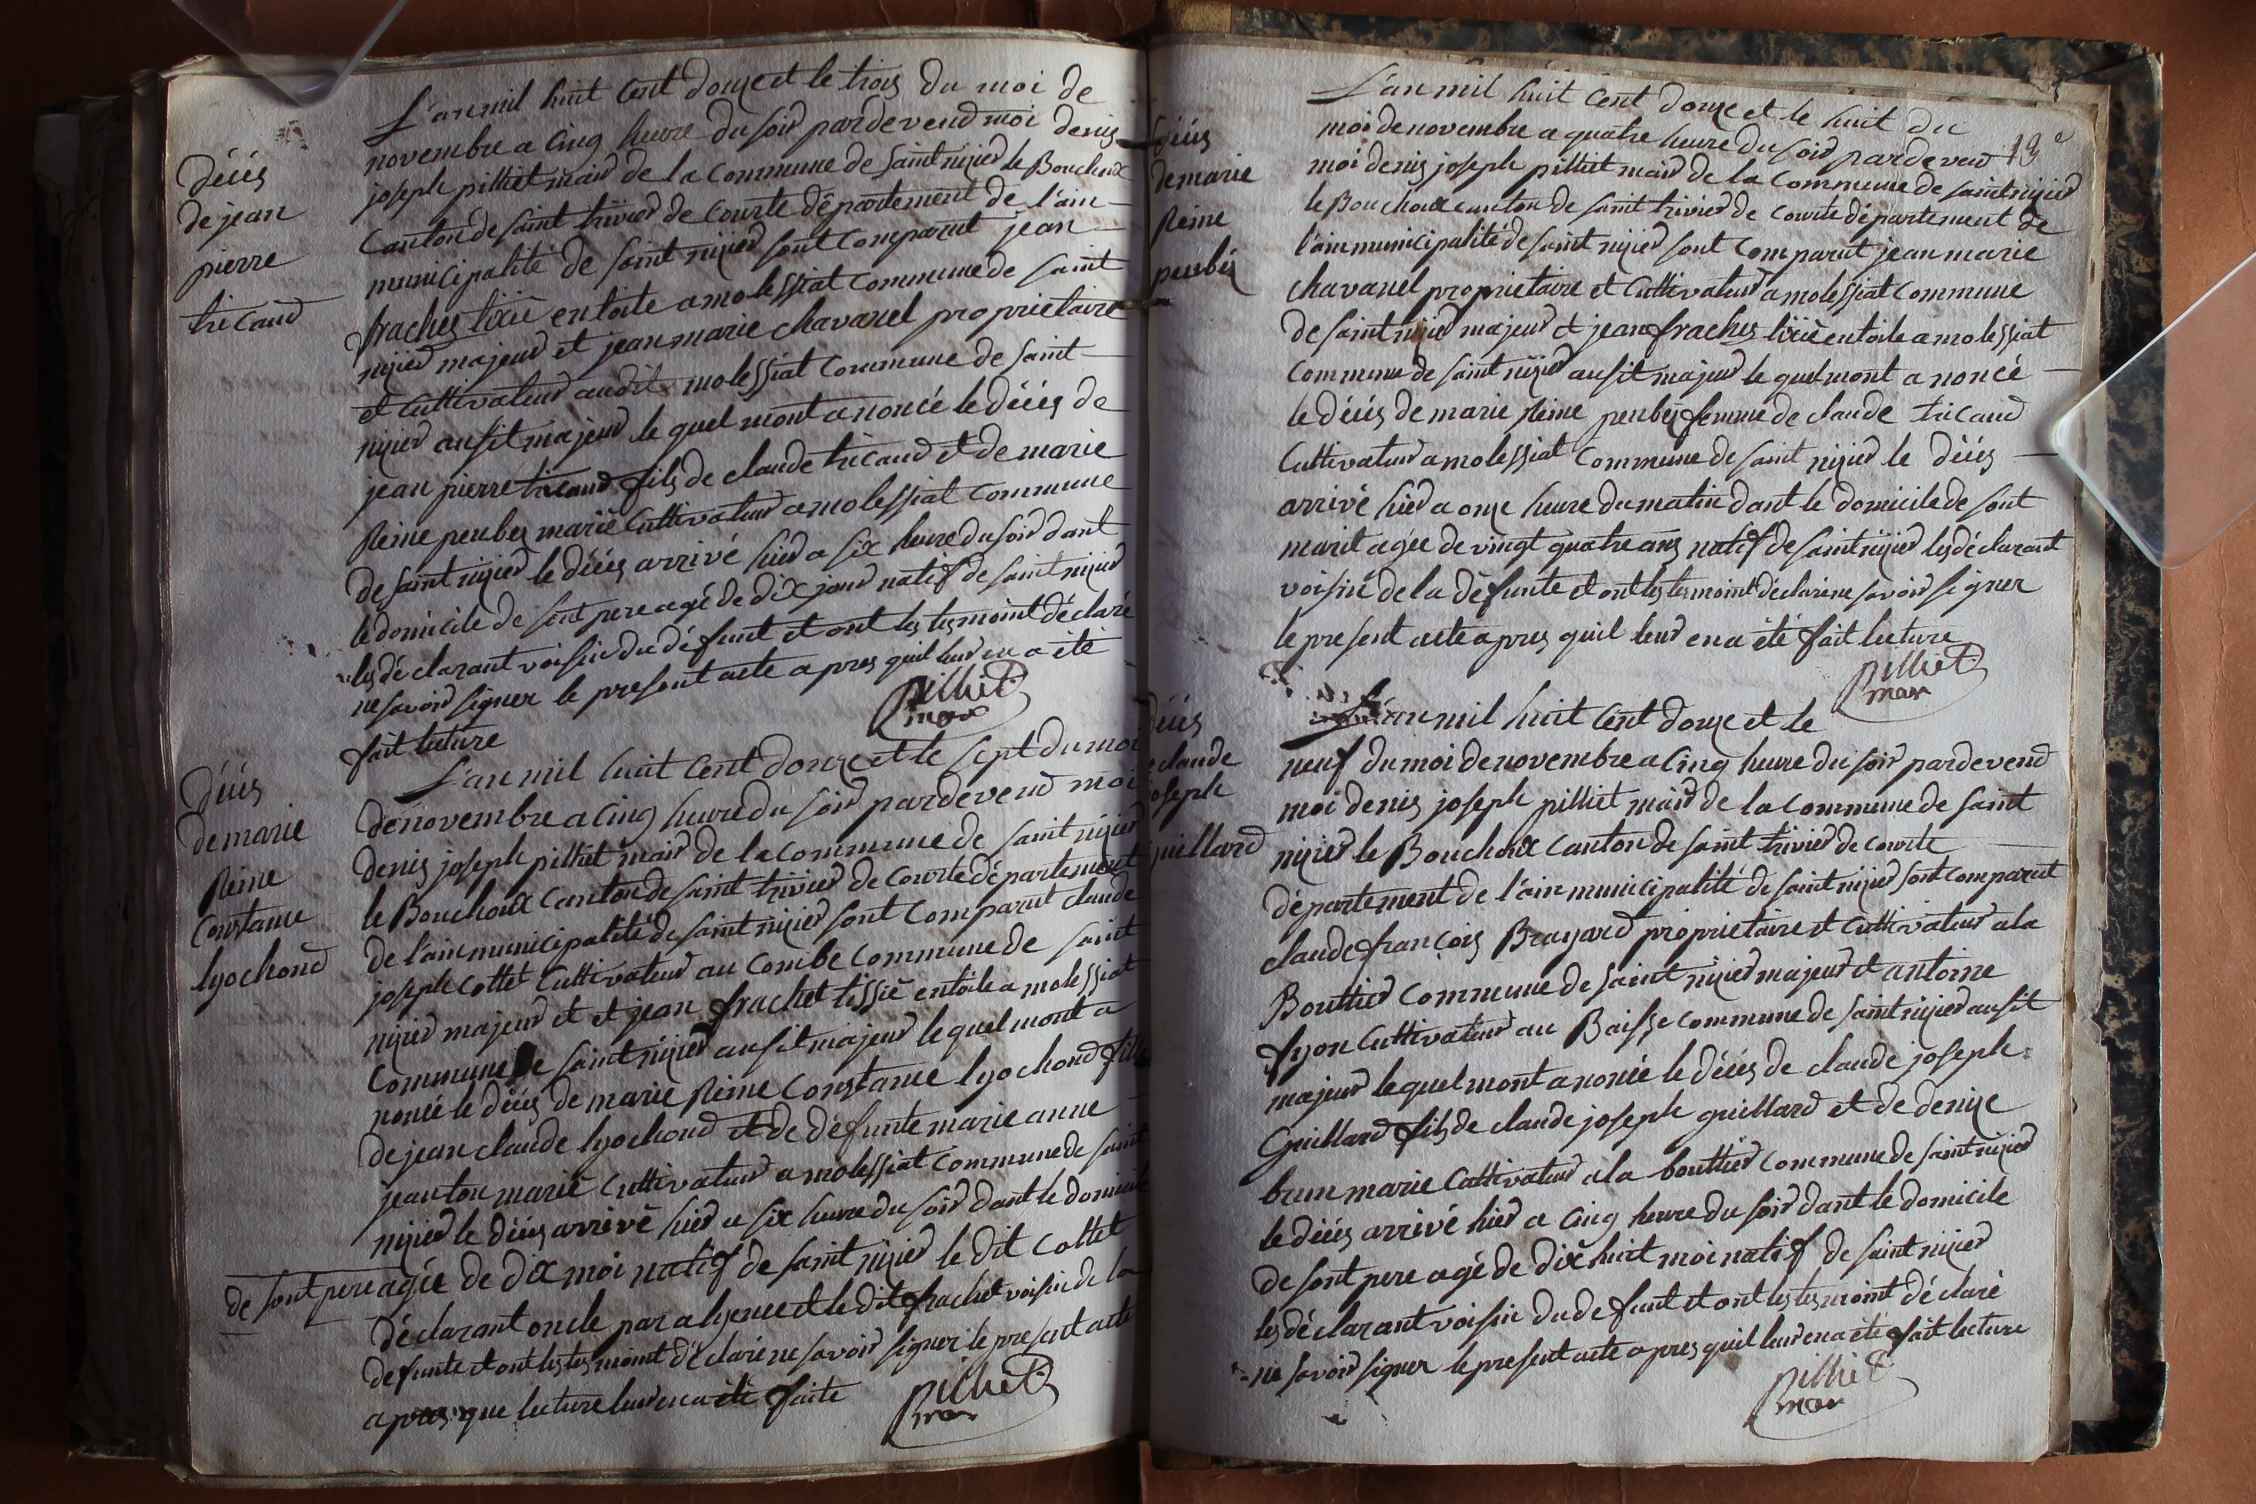 décés
de jean
pierre
tricaud
L'an mil huit cent douze et le trois du moi de
novembre a cinq heure du soir pardevend moi denis
joseph pilliet mair de la commune de saint nizier le Bouchoux
canton de saint trivier de courte département de l'ain
municipalité de saint nizier sont comparut jean
fraches tixié entoile a molessiat commune de saint
nizier majeur et jean marie chavanel proprietaire
et cultivateur audit molessiat commune de saint
nizier ausit majeur le quel mont anoncé le décés de
jean pierre tricaud fils de claude tricaud et de marie
Reine penbey marié cultivateur a molessiat commune
de saint nizier le décés arrivé hier a six heure du soir dant
le domicile de sont pere agé de dix jour natif de saint nizier
les déclarant voisin du défunt et ont les tesmoint déclaré
ne savoir signer le present acte apres quil leur en a été
fait lecture
pilliet
mair
décés
de marie
Reine
Constance
lyochond
L'an mil huit cent douze et le sept du moi
de novembre a cinq heure du soir pardevend moi
denis joseph pilliet mair de la commune de saint nizier
le Bouchoux canton de saint trivier de courte département
de l'ain municipalité de saint nizier sont comparut claude
joseph cottet cultivateur au combe commune de saint
nizier majeur et et jean frachet tissié entoile a molessiat
commune de saint nizier ausit majeur le quel mont a
noncé le décés de marie Reine Constance lyochond fille
de jean claude lyochond et de défunte marie anne
jeanton marié cultivateur a molessiat commune de saint
nizier le décés arrivé hier a six heure du soir dant le domicile
de sont pere agée de dix moi natif de saint nizier le dit cottet
déclarant oncle par alyence et le dit frachet voisin de la
defunte et ont les tesmoint déclaré ne savoir signer le present acte
apres que lecture leur en a été faite
pilliet
mair
19e
décés
de marie
Reine
penbey
L'an mil huit cent douze et le huit du
moi de novembre a quatre heure du soir pardevend
moi denis joseph pilliet mair de la commune de saint nizier
le Bouchoux canton de saint trivier de courte département de
l'ain municipalité de saint nizier sont comparut jean marie
chavanel proprietaire et cultivateur a molessiat commune
de saint nizier majeur et jean fraches tixié entoile a molessiat
commune de saint nizier ausit majeur le quel mont anoncé
le décés de marie Reine penbey femme de claude tricaud
cultivateur a molessiat commune de saint nizier le décés
arrivé hier a onze heure du matin dant le domicile de sont
marit agée de vingt quatre ans natif de saint nizier les déclarant
voisin de la défunte et ont les tesmoint déclaré ne savoir signer
le present acte apres quil leur en a été fait lecture
pilliet
mair
décés
de claude
joseph
guillard
L'an mil huit cent douze et le
neuf du moi de novembre a cinq heure du soir pardevend
moi denis joseph pilliet mair de la commune de saint
nizier le Bouchoux canton de saint trivier de courte
département de l'ain municipalité de saint nizier sont comparut
claude françois Brayard proprietaire et cultivateur a la
Bouttier commune de saint nizier majeur et antoine
fyon cultivateur au Baisse commune de saint nizier ausit
majeur le quel mont anoncé le décés de claude joseph
Guillard fils de claude joseph guillard et de denize
brun marié cultivateur a la bouttier commune de saint nizier
le décés arrivé hier a cinq heure du soir dant le domicile
de sont pere agé de dix huit moi natif de saint nizier
les déclarant voisin du defunt et ont les tesmoint déclaré
ne savoir signer le present acte apres quil leur en a été fait lecture
pilliet
mair